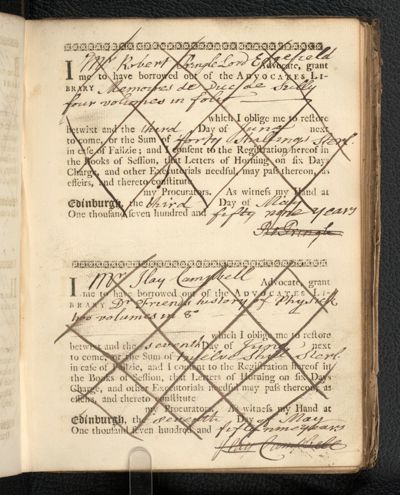 I Mr Robert Pringle Lord Edgefield Advocate, grant
me to have borrowed out of the ADVOCATES LI-
BRARY Memoires de Duc de Sully
four volumes in four
which I oblige me to restore
betwixt and the third Day of June next
to come, for the Sum of forty shillings Sterl.
in case of Failzie; and I consent to the Registration hereof in
the Books of Session, that Letters of Horning on six Days
Charge, and other Executorials needful may pass thereon, as
effeirs, and thereto constitute
my Procurators. As witness my Hand at
Edinburgh, the third Day of May
One thousand seven hundred and fifty nine years
Ro Pringle
I Mr Ilay Campbell Advocate, grant
me to have borrowed out of the ADVOCATES LI-
BRARY Dr Friends history of Physick
two volumes in 8o
which I oblige me to restore
betwixt and the seventh Day of June next
to come, for the Sum of twelve Shill Sterl.
in case of Failzie, and I consent to the Registration hereof in
the Books of Session, that Letters of Horning on six Days
Charge, and other Executorials needful may pass thereon, as
effeirs, and thereto constitute
my Procurators. As witness my Hand at
Edinburgh, the seventh Day of May
One thousand seven hundred and fifty nine years
Ilay Campbell